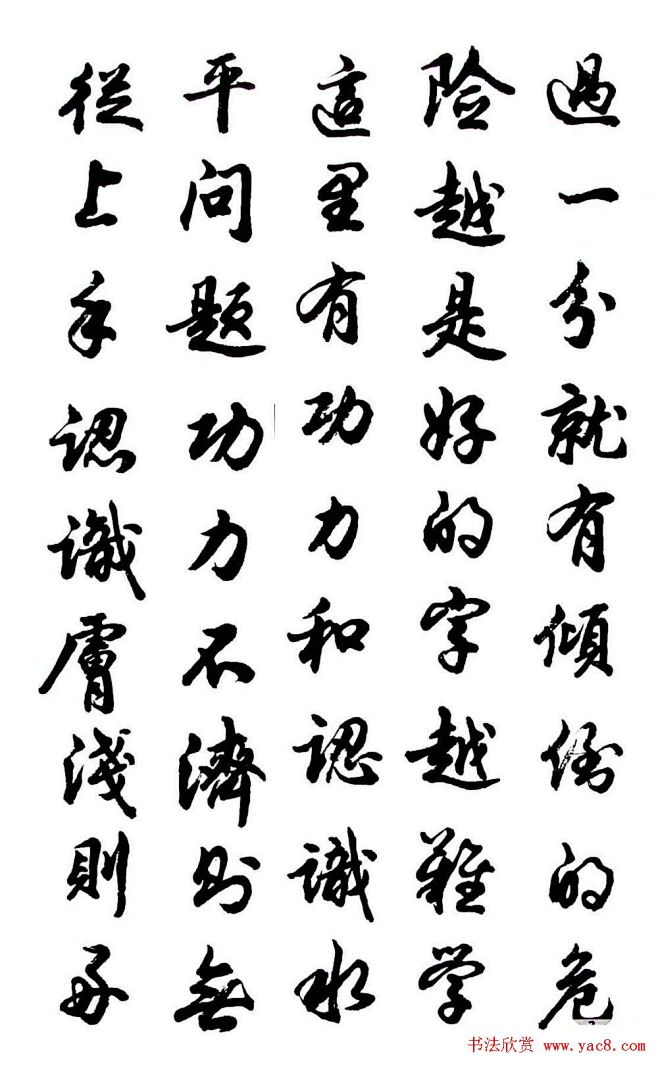 過一分就有傾倒的危
险越是好的字越難学
這里有功力和認識水
平问题功力不濟则無
從上手認識膚淺則
书法欣赏 www.yac8.com